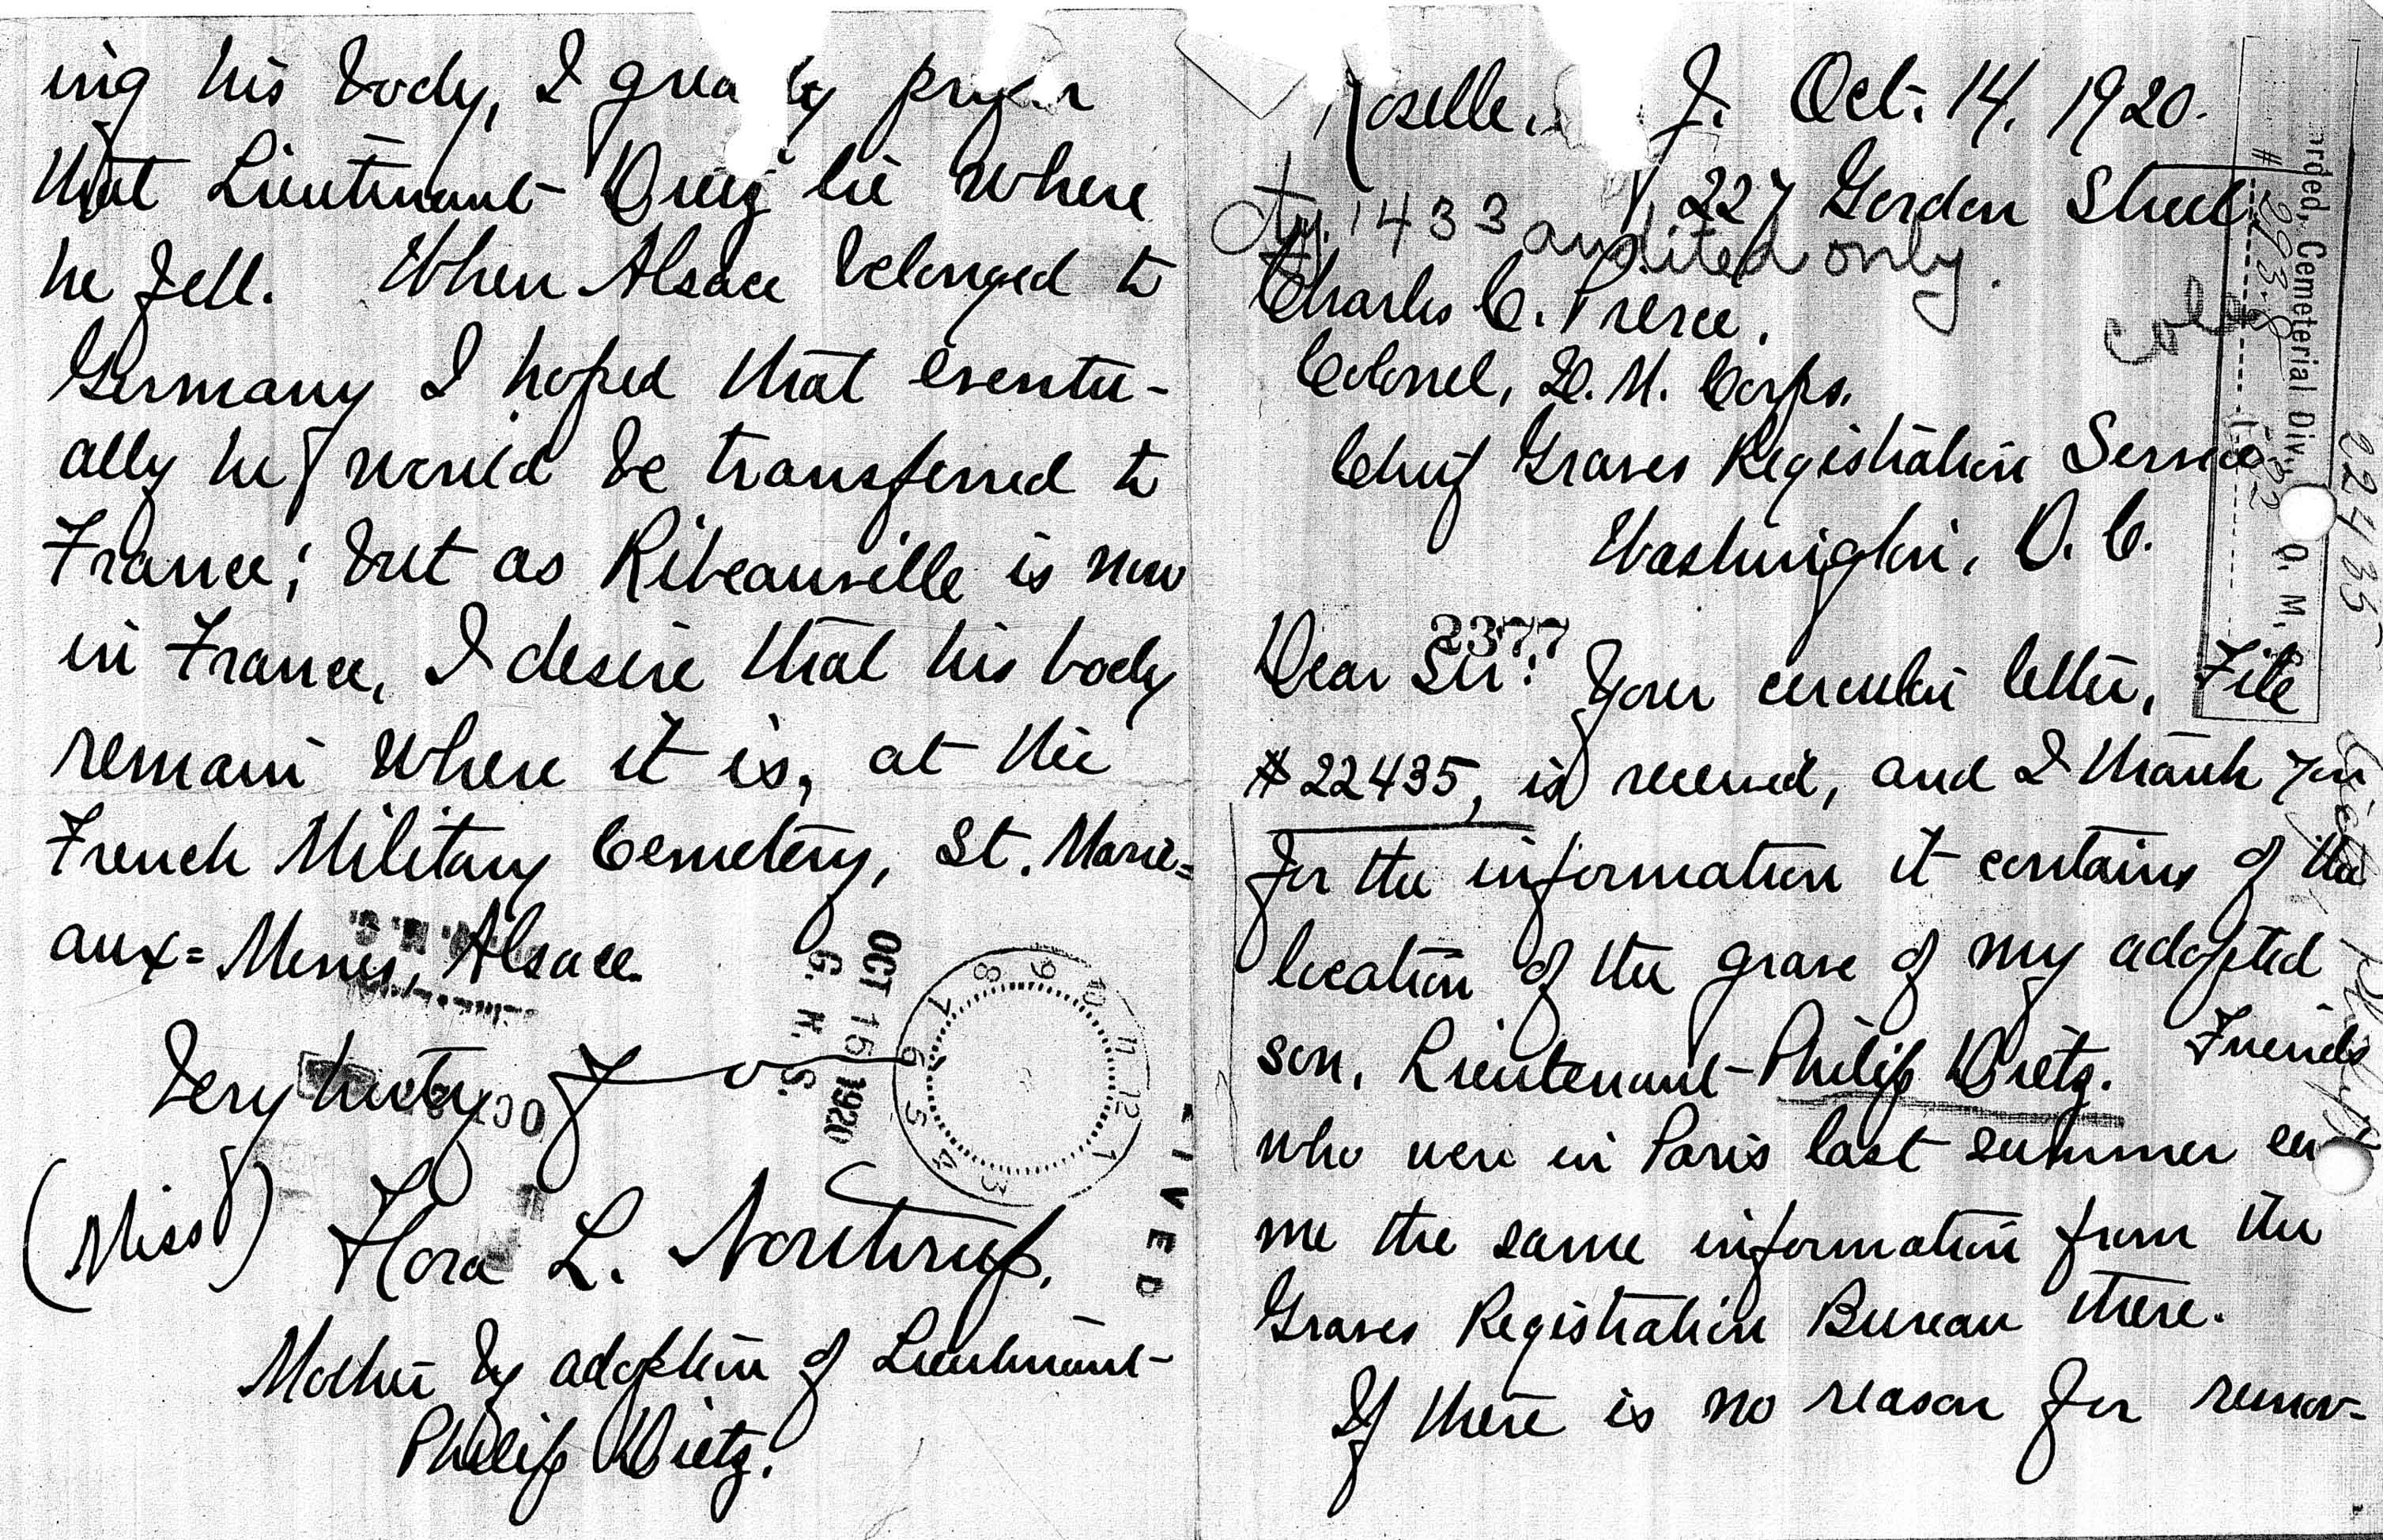 Roselle, J. Oct. 14, 1920.
227 Gordon Street
1433 audited only.
Charles C. Pierce,
Colonel, Q. M. Corps.
Chief Graves Registration Service
Washington, D. C.
2377
Dear Sir: Your circular letter, File
#22435, is received, and I thank you
for the information it contains of the
location of the grave of my adopted
son, Lieutenant Philip Dietz. Friends
who were in Paris last summer
me the same information from the
Graves Registration Bureau there.
If there is no reason for remov-
ing his body, I prefer
that Lieutenant Dietz lie where
he fell. When Alsace belonged to
Germany I hoped that eventu-
ally he would be transferred to
France; but as Ribeauville is now
in France, I desire that his body
remain where it is, at the
French Military Cemetery, St. Marie=
aux=Mines, Alsace.
Very truly yours
(Miss) Flora L. Northrup.
Mother by adoption of Lieutenant
Philip Dietz.
OCT 15 1920
G. R. S.
1 2 3 4 5 6 7 8 9 10 11 12
IVED
Cemeterial Div., Q. M.
# 293.8
22435